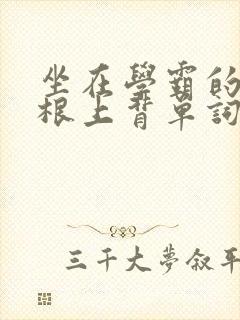 坐在學霸的
根上背單詞
三千大夢叙平